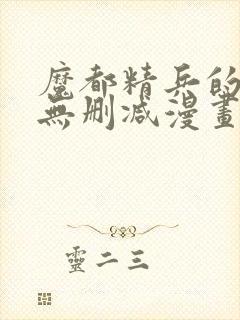 魔都精兵的
無刪减漫畫
靈二三